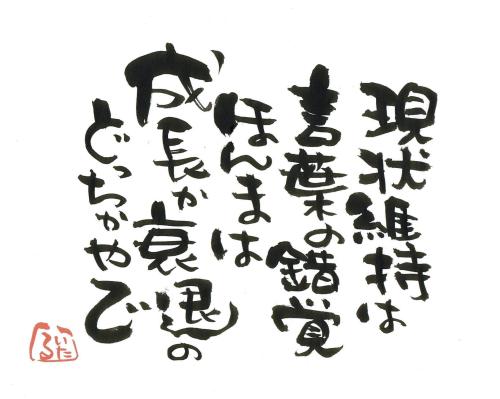 現状維持は
言葉の錯覚
ほんまは
成長か衰退の
どっちかやで
いたる